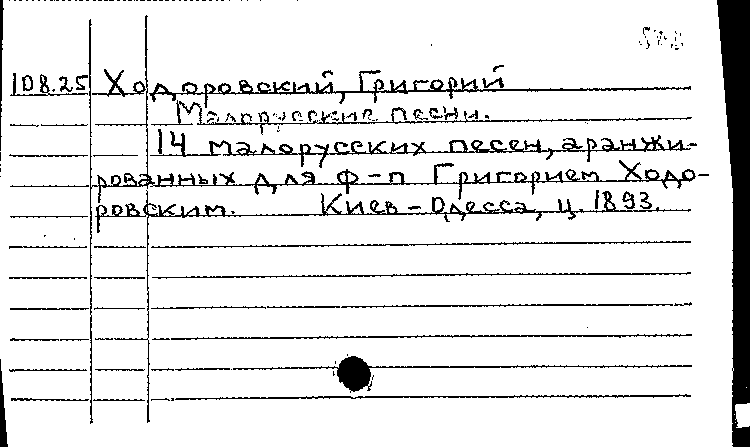 108.25 Ходоровский, Григорий
Малорусские песни.
14 малорусских песен, аранжи-
рованных для ф-п Григорием Ходо-
ровским. Киев-Одесса, ц. 1893.